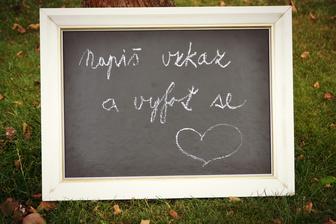 napiš vzkaz
a vyfoť se